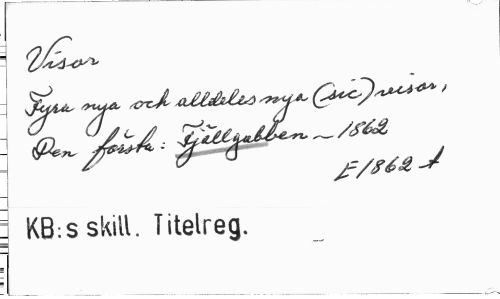 Visor
Fyra nya och alldeles nya (sic) visor,
Den första: Fjällgubben — 1862
E 1862 t
KB:s skill. Titelreg.